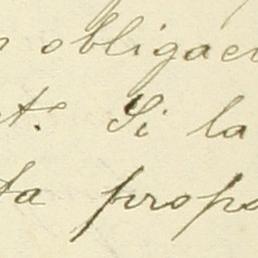 obligaci
t. Si la
ta propo